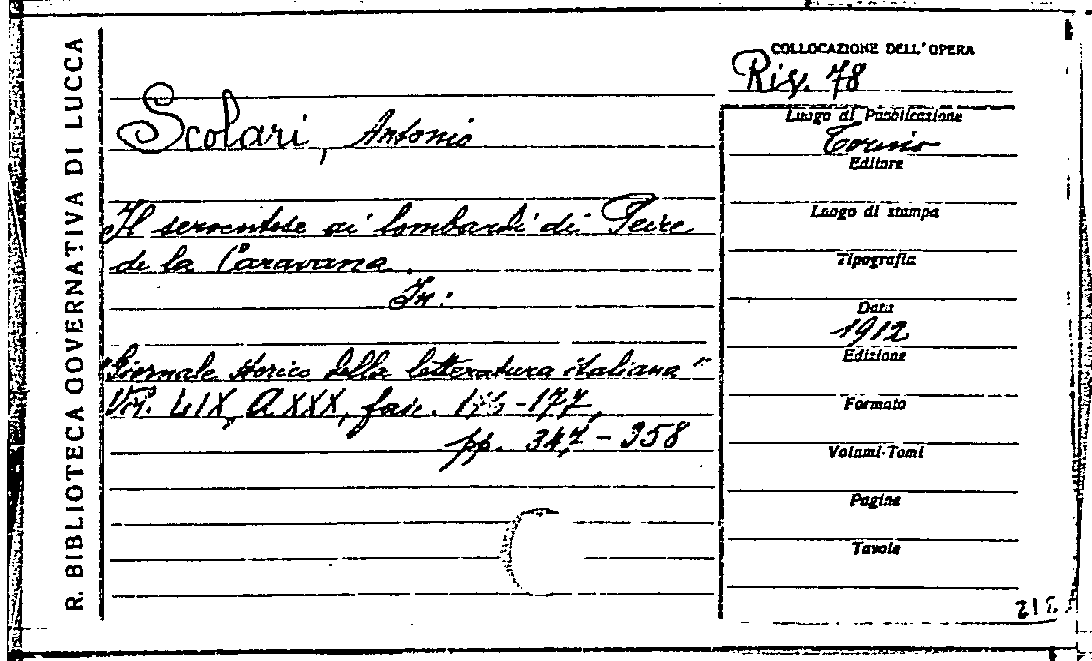 R. BIBLIOTECA GOVERNATIVA DI LUCCA
Scolari, Antonio
Il serventese ai lombardi di Peire
de la Caravana.
In:
"Giornale storico della letteratura italiana"
Vol. LIX, A XXX, fasc. -177,
pp. 347-358
COLLOCAZIONE DELL'OPERA
Riv. 78
Luogo di Pubblicazione
Torino
Editore
Luogo di stampa
Tipografia
Data
1912
Edizione
Formato
Volumi-Tomi
Pagine
Tavole